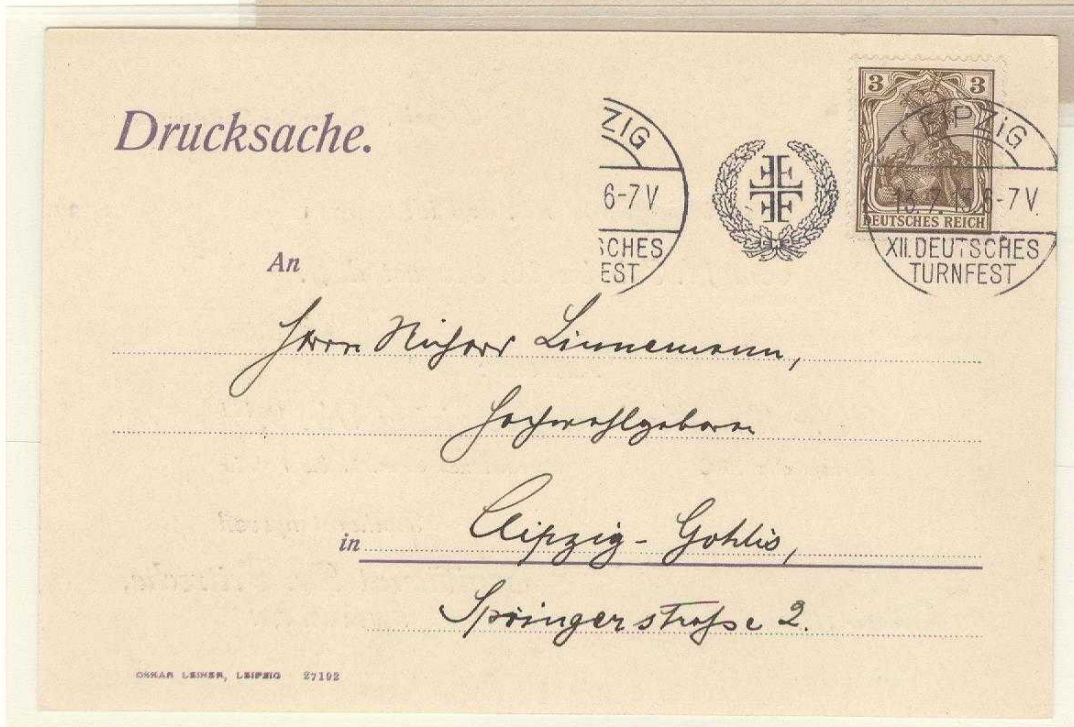 Drucksache.
3 3
DEUTSCHES REICH
ZIG
6-7 V
SCHES
EST
LEIPZIG
13.7.13.6-7V.
XII. DEUTSCHES
TURNFEST
An
Herrn Richard Linnemann,
Hochwohlgeboren
in Leipzig-Gohlis,
Springerstraße 2.
OSKAR LEINER, LEIPZIG 27192